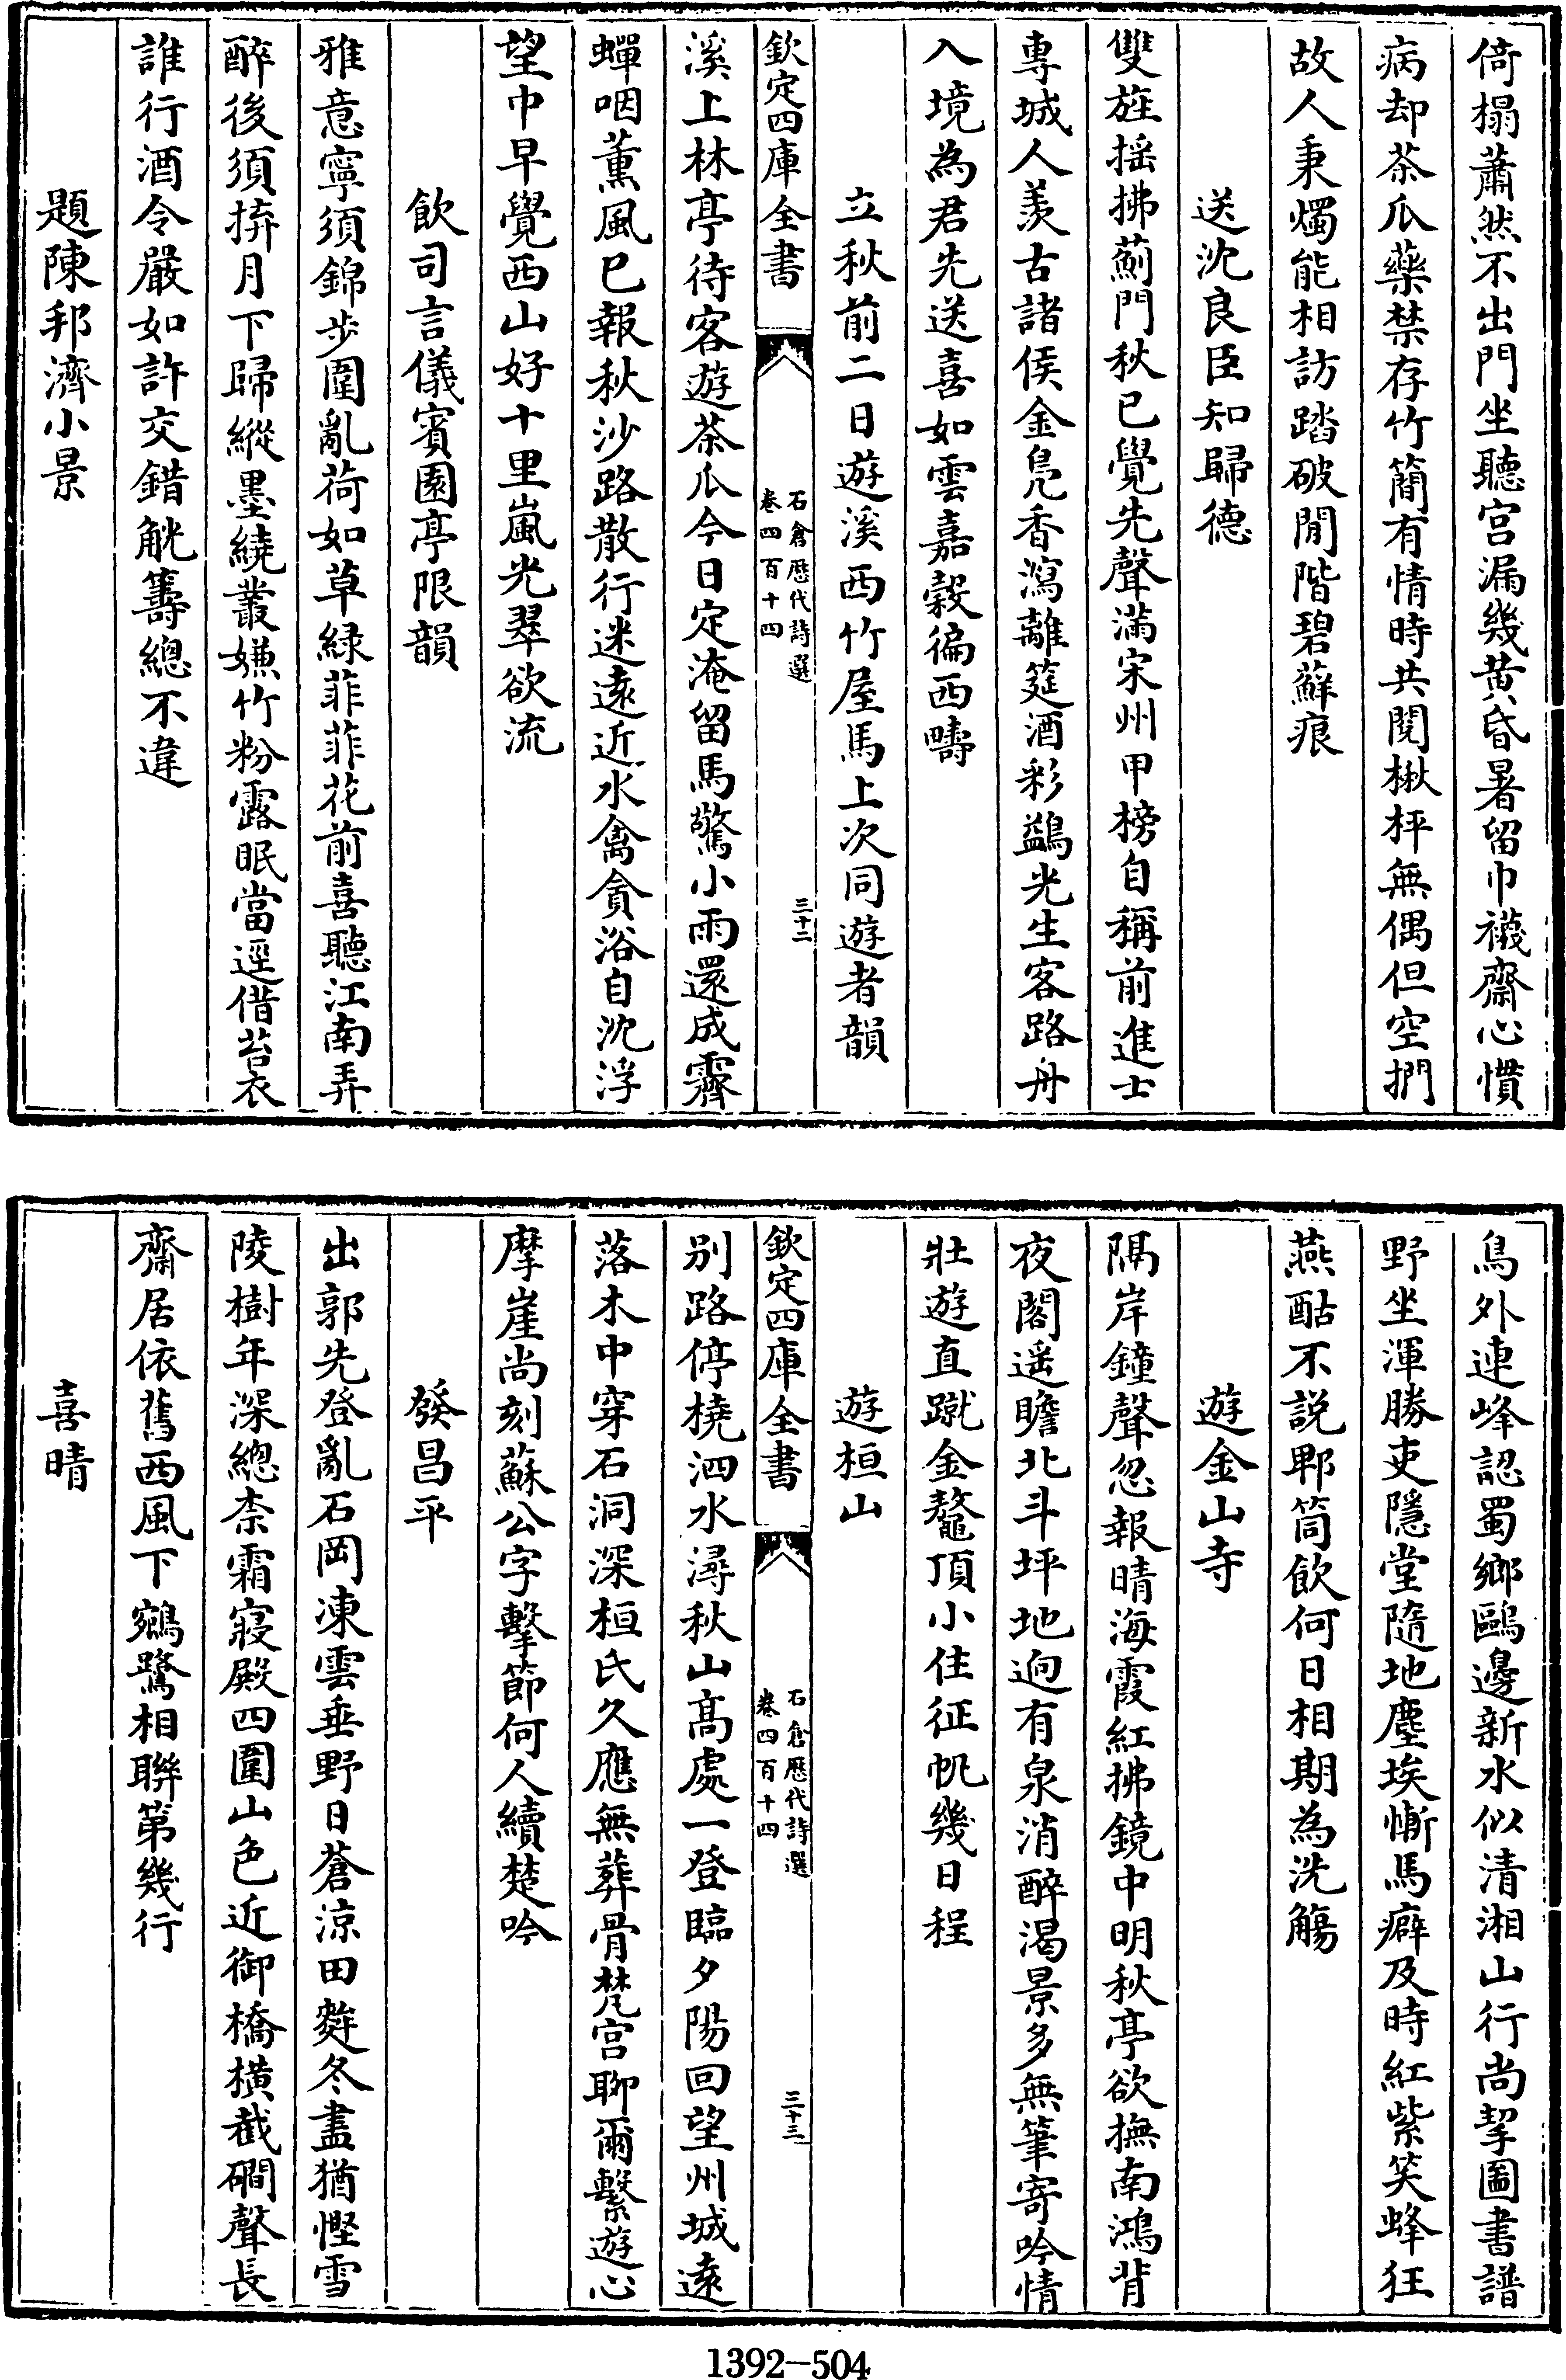 倚榻蕭然不出門坐聽宫漏幾黄昏暑留巾襪齋心慣
病却茶瓜藥禁存竹簡有情時共閲楸枰無偶但空捫
故人秉燭能相訪踏破閒階碧蘚痕
送沈良臣知歸德
雙旌揺拂薊門秋已覺先聲滿宋州甲榜自稱前進士
專城人羨古諸侯金凫香瀉離筵酒彩鷁光生客路舟
入境為君先送喜如雲嘉穀徧西疇
立秋前二日遊溪西竹屋馬上次同遊者韻
欽定四庫全書
石倉歴代詩選
卷四百十四
三十二
溪上林亭待客遊茶瓜今日定淹留馬驚小雨還成霽
蟬咽薰風已報秋沙路散行迷遠近水禽貪浴自沈浮
望中早覺西山好十里嵐光翠欲流
飲司言儀賓園亭限韻
雅意寧須錦步圍亂荷如草緑菲菲花前喜聽江南弄
醉後須拚月下歸縱墨繞叢嫌竹粉露眠當逕借苔衣
誰行酒令嚴如許交錯觥籌總不違
題陳邦濟小景
鳥外連峰認蜀鄉鷗邊新水似清湘山行尚挈圖書譜
野坐渾勝吏隱堂隨地塵埃慚馬癖及時紅紫笑蜂狂
燕酤不説郫筒飲何日相期為洗觴
遊金山寺
隔岸鐘聲忽報晴海霞紅拂鏡中明秋亭欲撫南鴻背
夜閣遥瞻北斗坪地逈有泉消醉渴景多無筆寄吟情
壯遊直蹴金鼇頂小住征帆幾日程
遊桓山
欽定四庫全書
石倉歴代詩選
卷四百十四
三十三
别路停橈泗水潯秋山髙處一登臨夕陽回望州城遠
落木中穿石洞深桓氏久應無葬骨梵宫聊爾繫遊心
摩崖尚刻蘇公字擊節何人續楚吟
發昌平
出郭先登亂石岡凍雲垂野日蒼涼田辣冬盡猶慳雪
陵樹年深總柰霜寢殿四圍山色近御橋横截磵聲長
齋居依舊西風下鵷鷺相聯第幾行
喜晴
1392-504